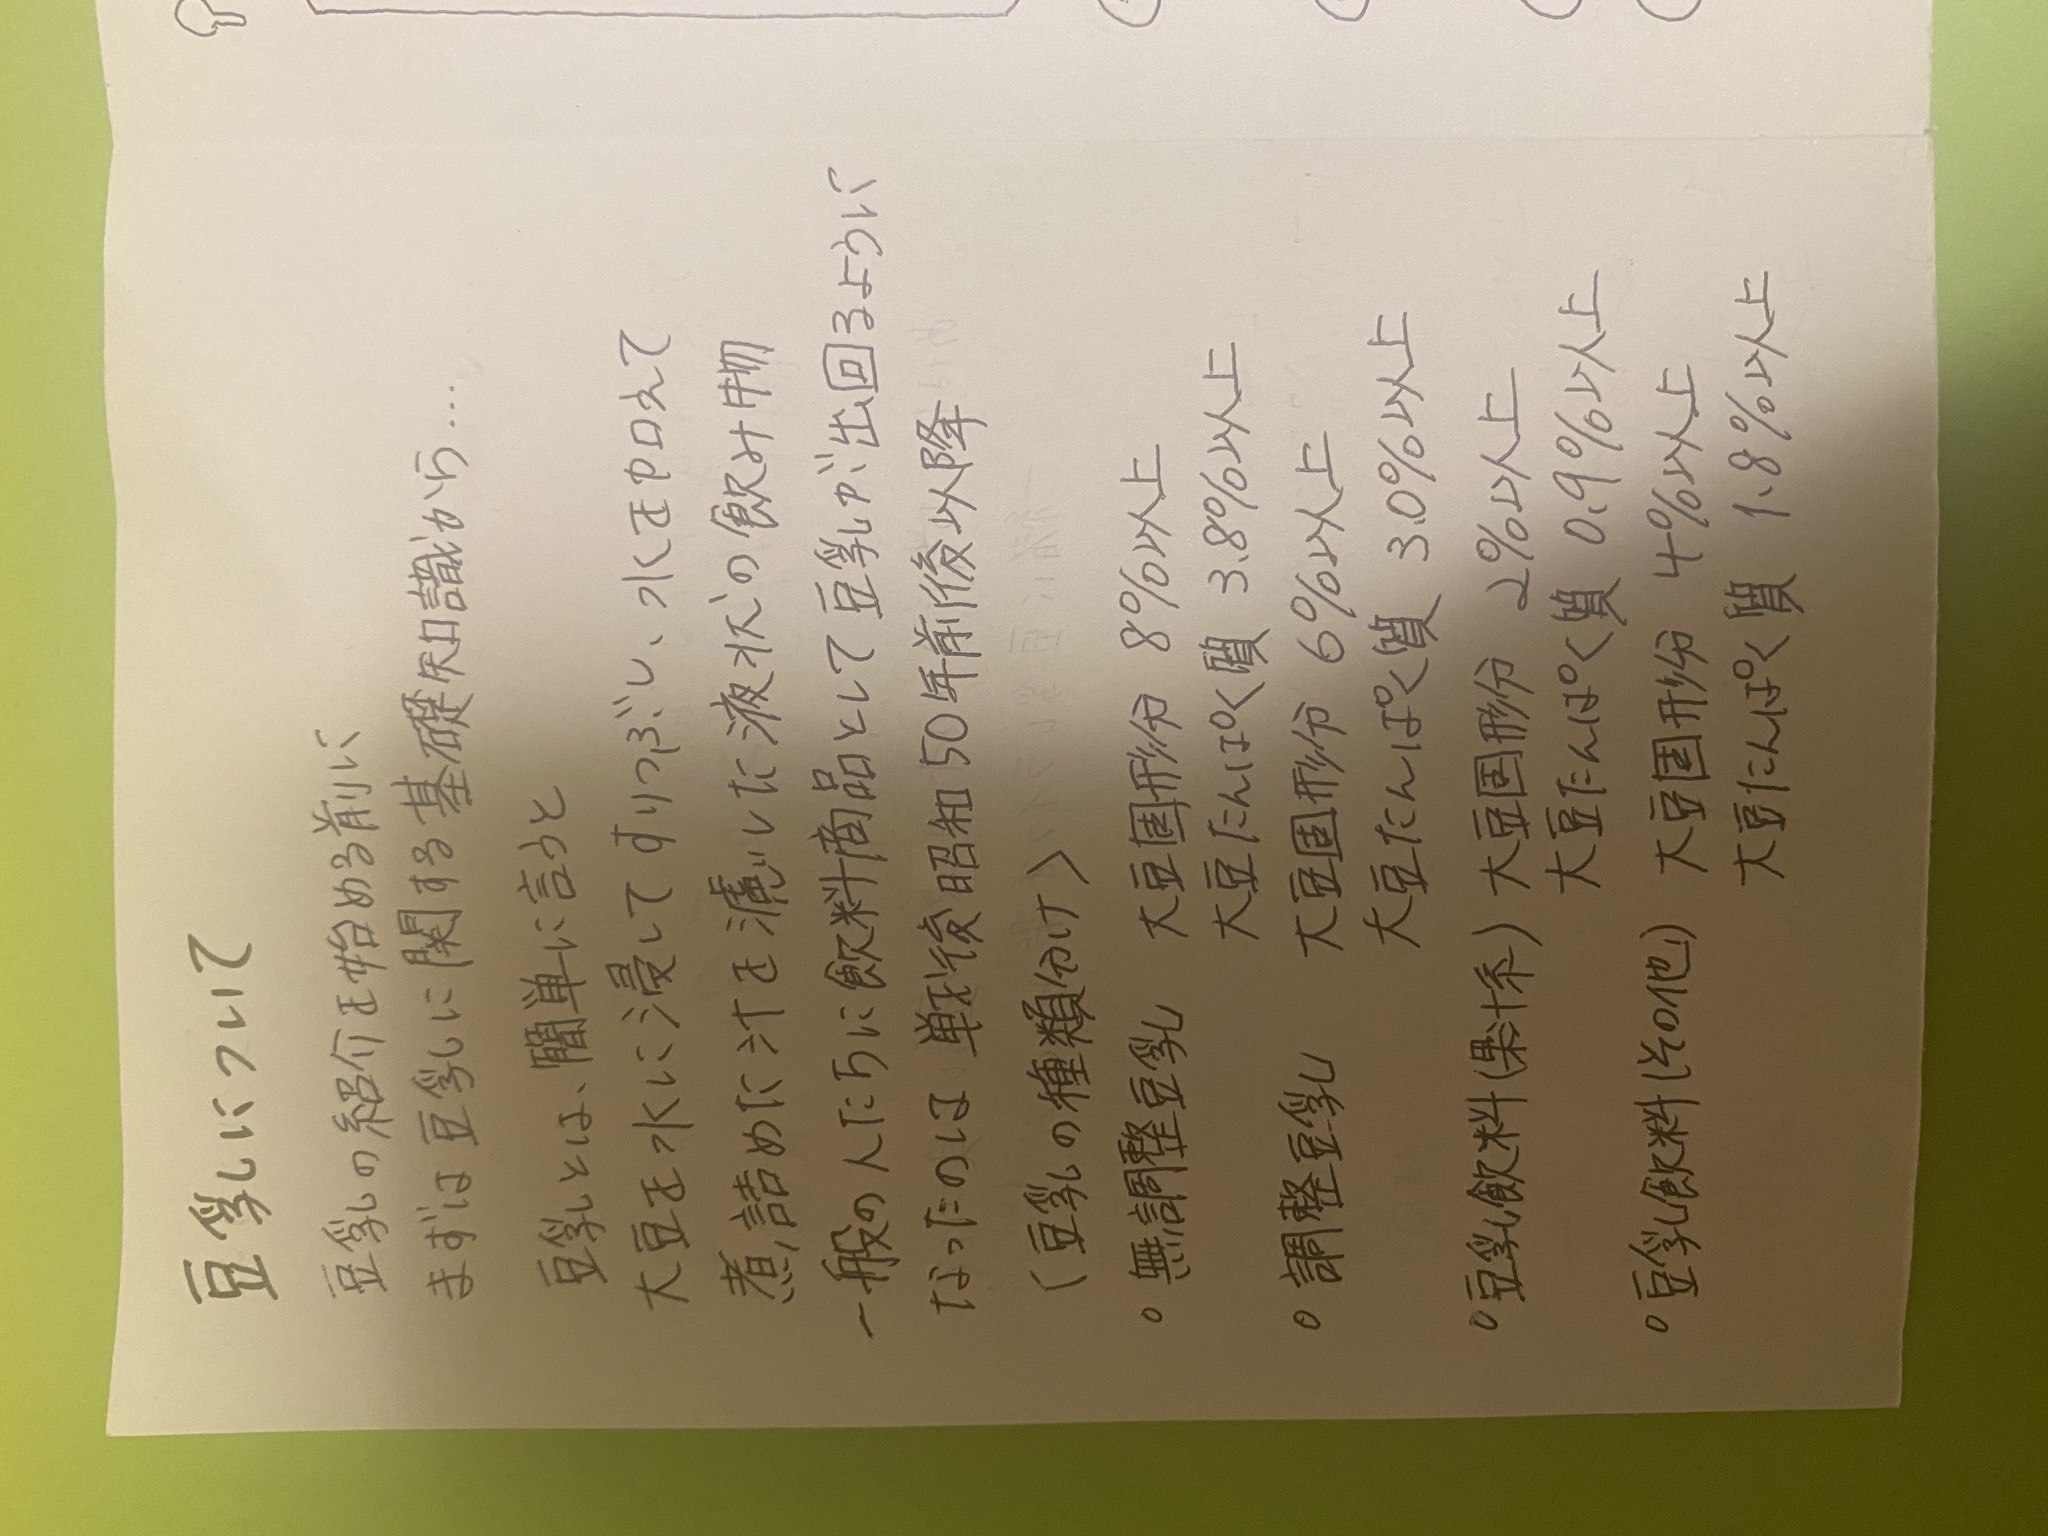 豆乳について
豆乳の紹介を始める前に
まずは豆乳に関する基礎知識から…
豆乳とは、簡単に言うと
大豆を水に浸してすりつぶし、水を加えて
煮詰めた汁を濾した液状の飲み物
一般の人たちに飲料商品として豆乳が出回るように
なったのは 戦後昭和50年前後以降
〈豆乳の種類分け〉
○ 無調整豆乳 大豆固形分 8%以上
大豆たんぱく質 3.8%以上
○ 調整豆乳 大豆固形分 6%以上
大豆たんぱく質 3.0%以上
○ 豆乳飲料(果汁系) 大豆固形分 2%以上
大豆たんぱく質 0.9%以上
○ 豆乳飲料(その他) 大豆固形分 4%以上
大豆たんぱく質 1.8%以上